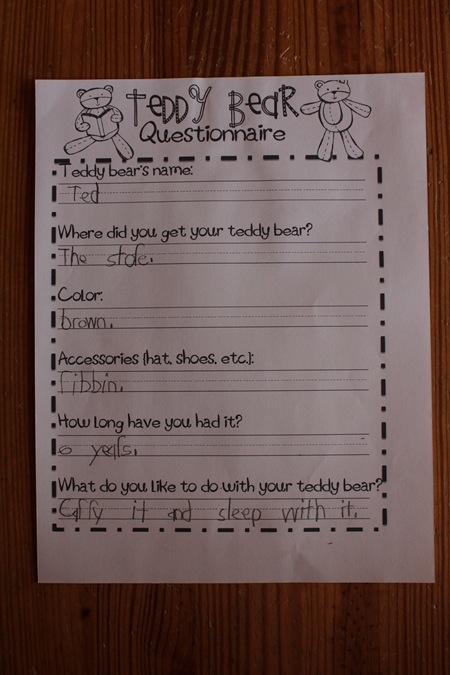 TEDDY BEAR
Questionnaire
Teddy bear's name:
Ted
Where did you get your teddy bear?
The store.
Color:
brown.
Accessories (hat, shoes, etc.):
ribbin.
How long have you had it?
6 years.
What do you like to do with your teddy bear?
Carry it and sleep with it.